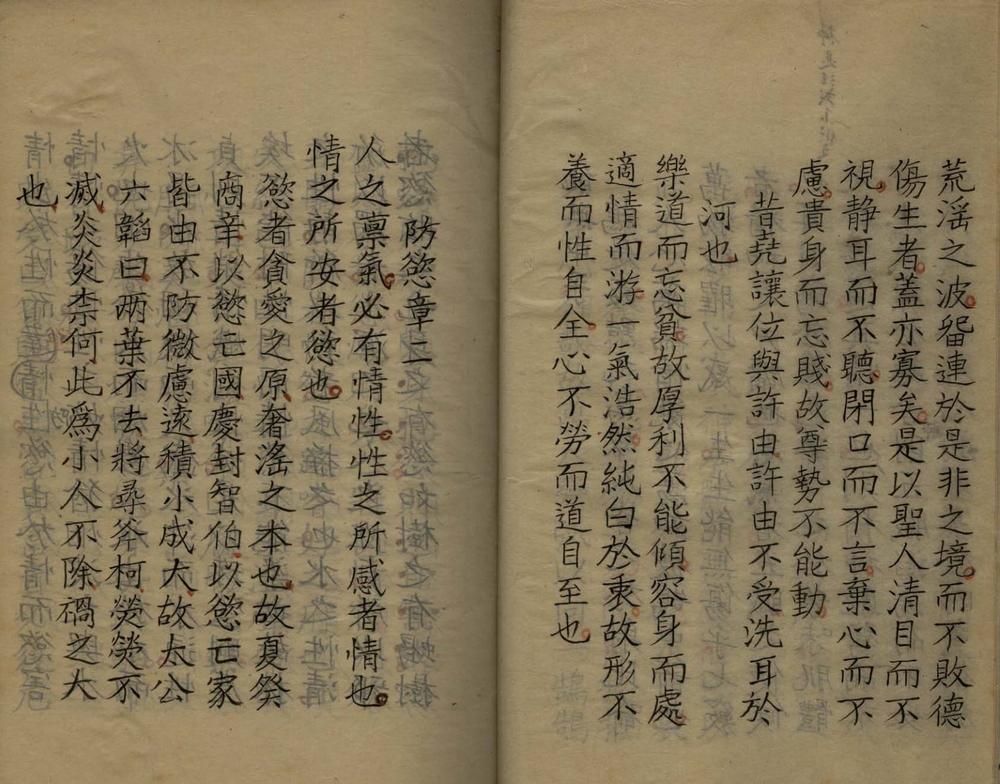 荒滛之波畱連於是非之境而不敗德
傷生者蓋亦寡矣是以聖人清目而不
視静耳而不聽閉口而不言棄心而不
慮貴身而忘賤故尊勢不能動
昔堯讓位與許由許由不受洗耳於
河也
樂道而忘貧故厚利不能傾容身而處
適情而游一氣浩然純白於衷故形不
養而性自全心不勞而道自至也
防慾章二
人之禀氣必有情性性之所感者情也
情之所安者慾也
慾者貪愛之原奢滛之本也故夏癸
商辛以慾亡國慶封智伯以慾亡家
皆由不防微慮遠積小成大故太公
六韜曰两葉不去將尋斧柯熒熒不
滅炎炎柰何此爲小人不除禍之大
也